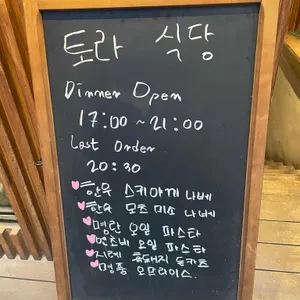 토라 식당
Dinner Open
17:00 ~ 21:00
Last Order
20:30
한우 스키야끼 나베
한우 모츠 미소 나베
명란 오일 파스타
오일 파스타
카레 흑돼지 돈카츠
명품 오므라이스.